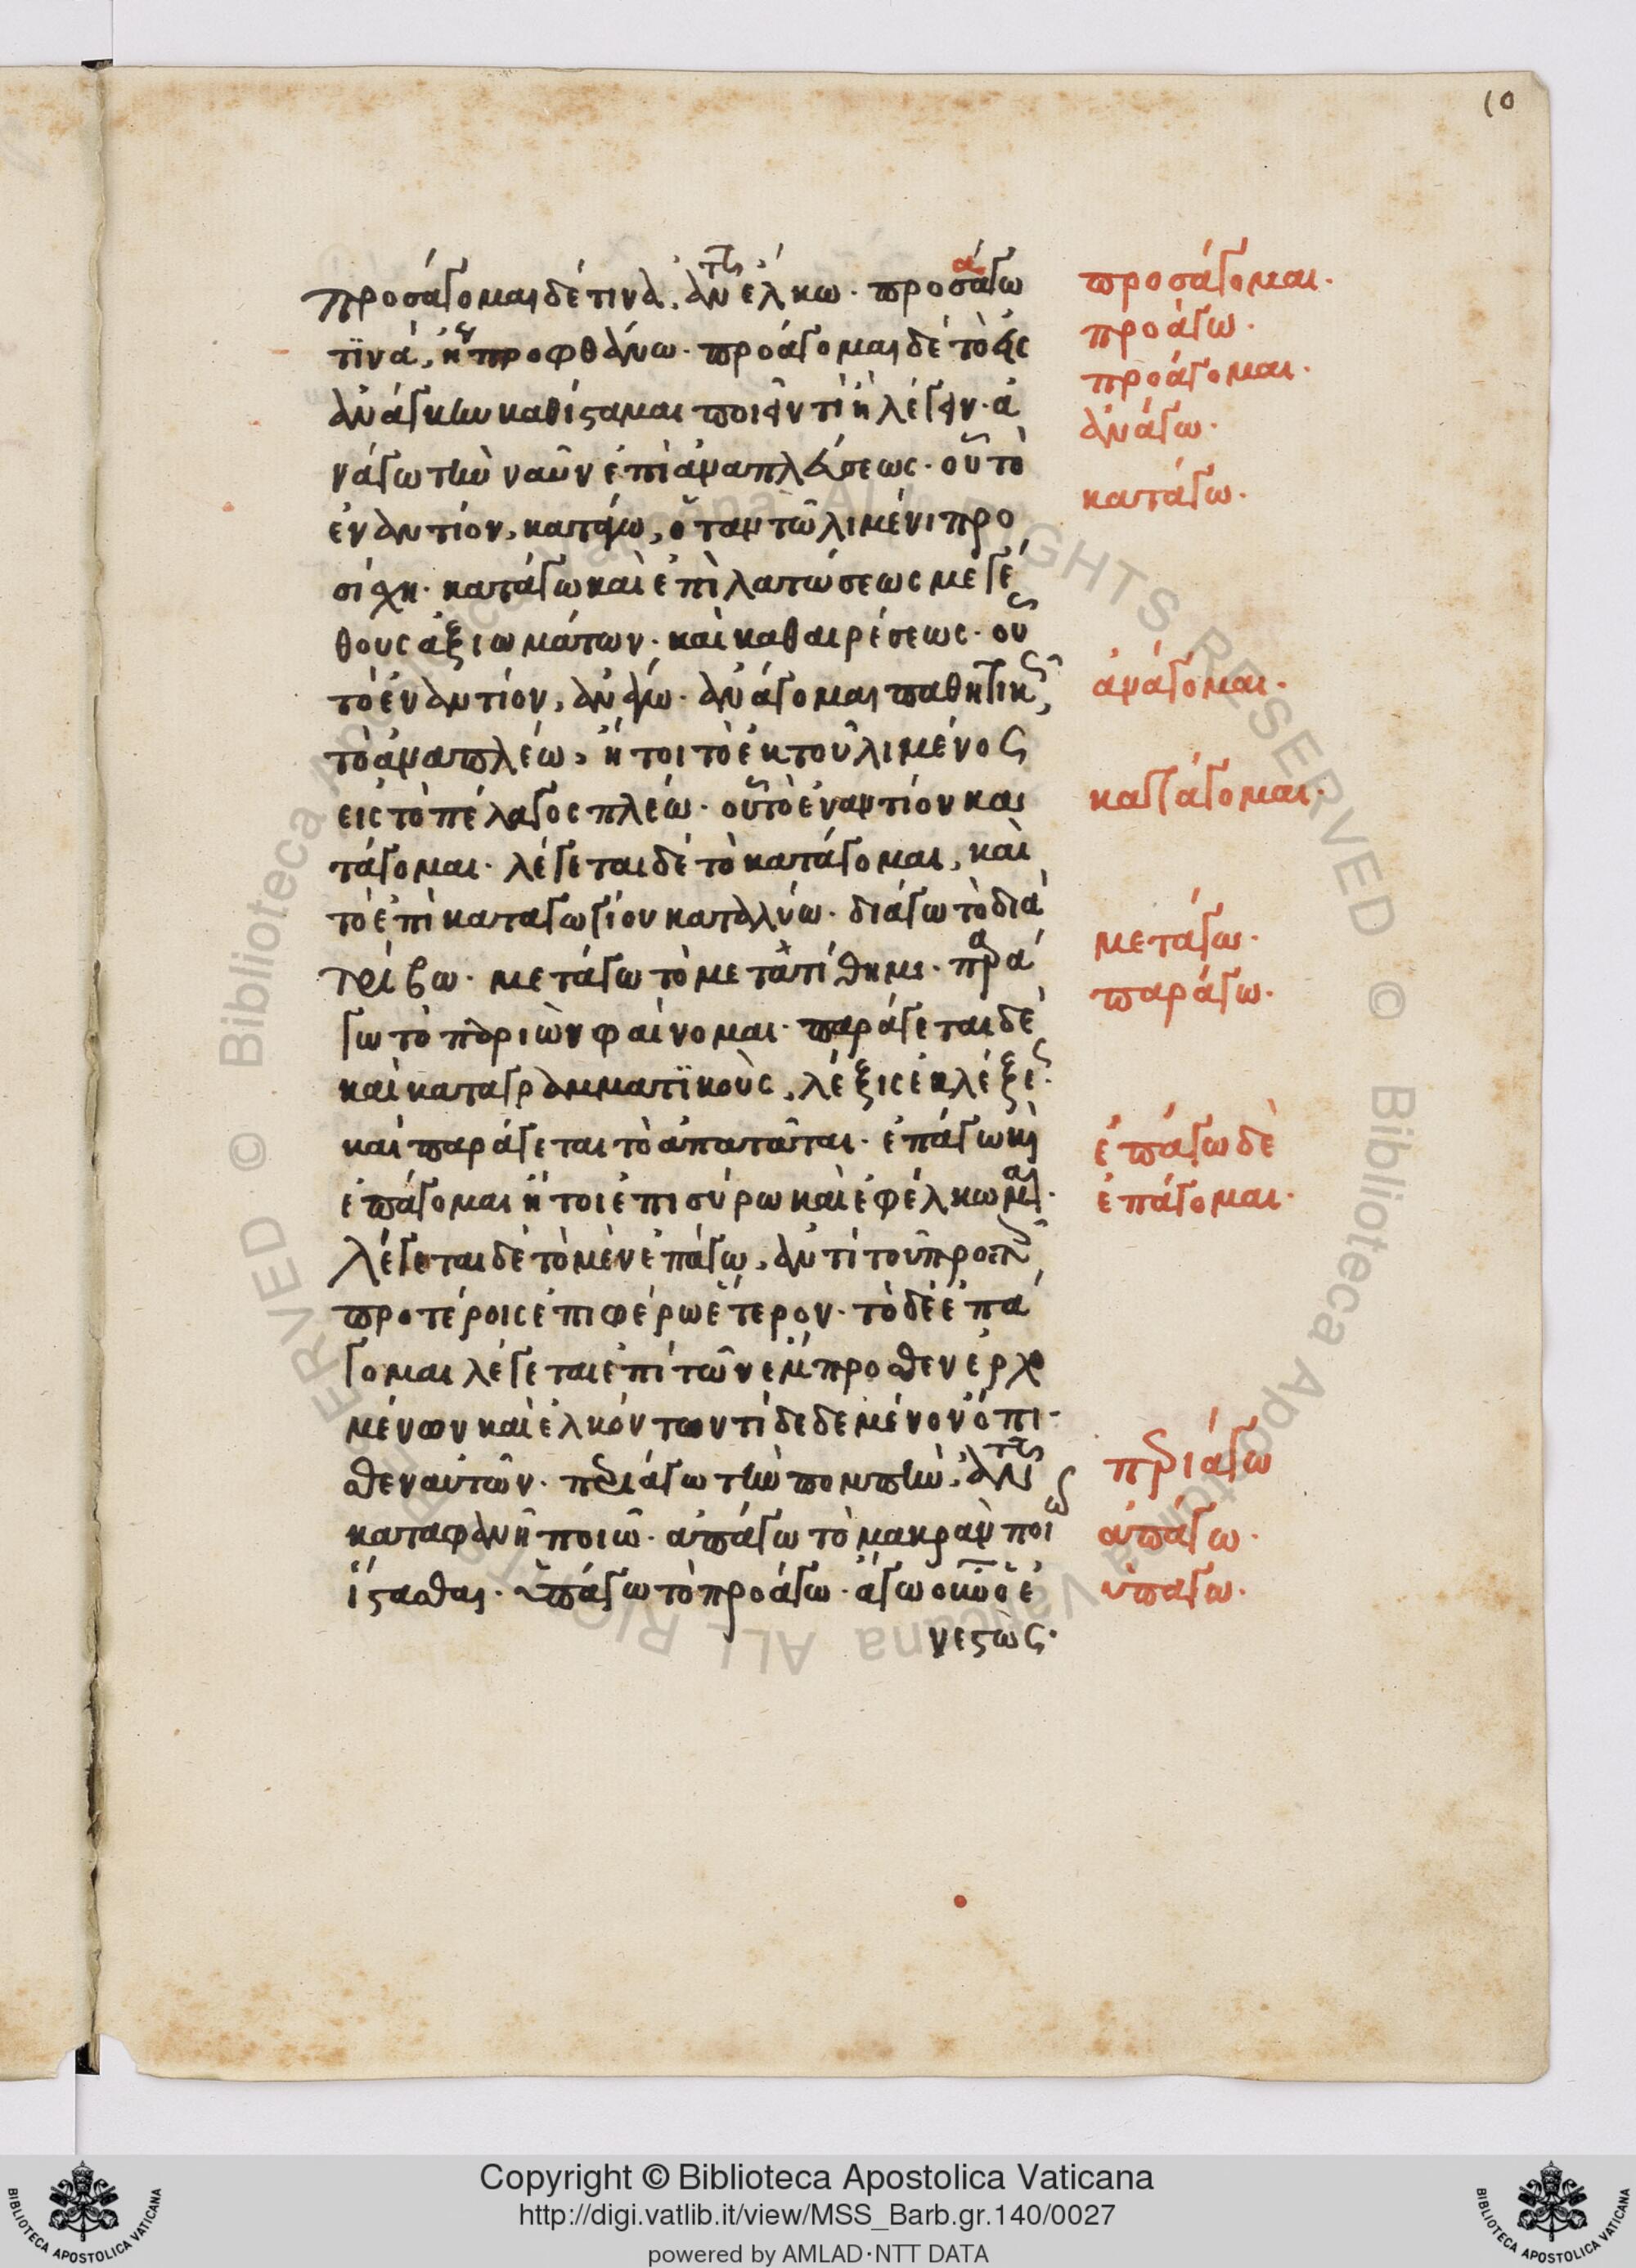 10
προσάγομαι δέ τινα, ἀντὶ τοῦ ἕλκω. προσάγω
τινά, ἤγουν προφθάνω. προάγομαι δὲ τὸ εἰς
ἀνάγκην καθίσταμαι ποιεῖν τὶ ἢ λέγειν. ἀ
νάγω τὴν ναῦν ἐπὶ ἀναπλεύσεως. οὗ τὸ
ἐναντίον, κατάγω, ὅταν τῶ λιμένι προ
σίσχη. κατάγω καὶ ἐπὶ ἐλαττώσεως μεγέ
θους ἀξιωμάτων. καὶ καθαιρέσεως. οὗ
τὸ ἐναντίον, ἀνάγω. ἀνάγομαι παθητικῶς,
τὸ ἀναπλέω, ἤτοι τὸ ἐκ τοῦ λιμένος
εἰς τὸ πέλαγος πλέω. οὗ τὸ ἐναντίον κα
τάγομαι. λέγεται δὲ τὸ κατάγομαι, καὶ
τὸ ἐπὶ καταγωγίου καταλύω. διάγω τὸ δια
τρίβω. μετάγω τὸ μετατίθημι. παρά
γω τὸ παριὼν φαίνομαι. παράγεται δὲ
καὶ κατὰ γραμματικοὺς, λέξις ἐκ λέξεως.
καὶ παράγεται τὸ ἀπατᾶται. ἐπάγω καὶ
ἐπάγομαι ἤτοι ἐπισύρω καὶ ἐφέλκομαι.
λέγεται δὲ τὸ μὲν ἐπάγω, ἀντὶ τοῦ προ
προτέροις ἐπιφέρω ἕτερον. τὸ δὲ ἐπά
γομαι λέγεται ἐπὶ τῶν ἔμπροσθεν ἐρχο
μένων καὶ ἑλκόντων τὶ δεδεμένον ὄπι-
σθεν αὐτῶν. περιάγω τὴν πομπὴν, ἀντὶ τοῦ
καταφανῆ ποιῶ. ἀπάγω τὸ μακρὰν ποιῶ
ἵστασθαι. ὑπάγω τὸ προάγω. ἄγω ὁ ἐ
νεστὼς.
προσάγομαι.
προάγω.
προάγομαι.
ἀνάγω.
κατάγω.
ἀνάγομαι.
κατάγομαι.
μετάγω.
παράγω.
ἐπάγω δὲ
ἐπάγομαι.
περιάγω
ἀπάγω.
ὑπάγω.
Copyright © Biblioteca Apostolica Vaticana
http://digi.vatlib.it/view/MSS_Barb.gr.140/0027
powered by AMLAD·NTT DATA